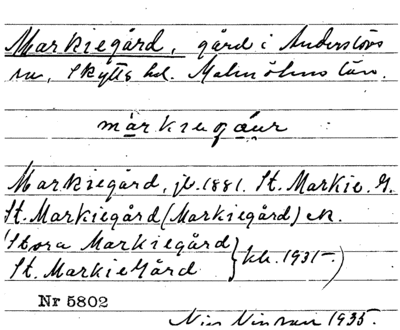 Markiegård, gård i Anderslövs
sn, Skytts hd. Malmöhus län.
markiegæur
Markiegård, jb. 1881. St. Markie. G.
St. Markiegård (Markiegård) ek.
Stora Markiegård
St. MarkieGård } kk. 1931–)
Nr 5802
1935.